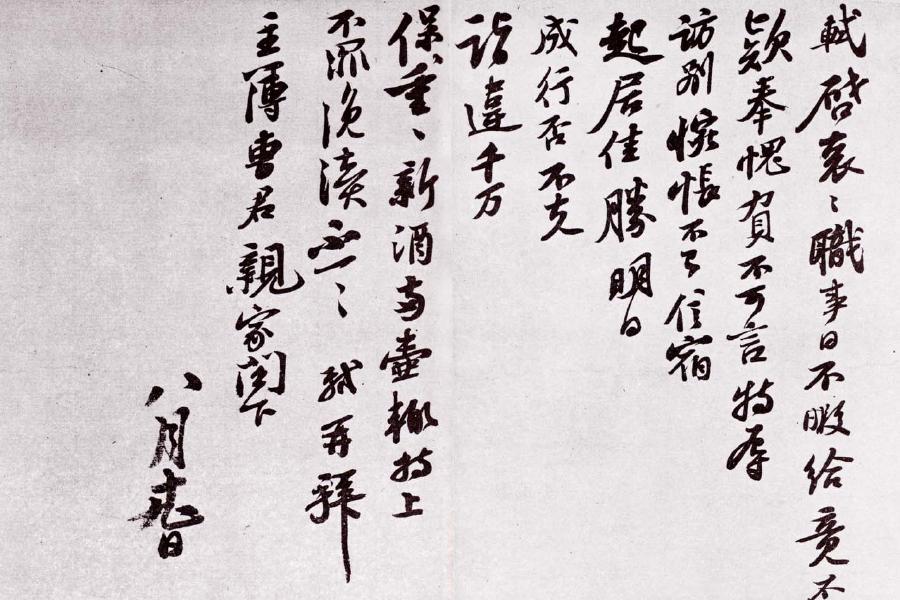 軾啓衰〻職事日不暇給竟不
款奉愧負不可言特辱
訪別惋悵不已信宿
起居佳勝明日
成行否不克
詣違千万
保重〻新酒兩壺輒持上
不罪浼瀆不一〻軾再拜
主簿曹君親家閤下
八月日